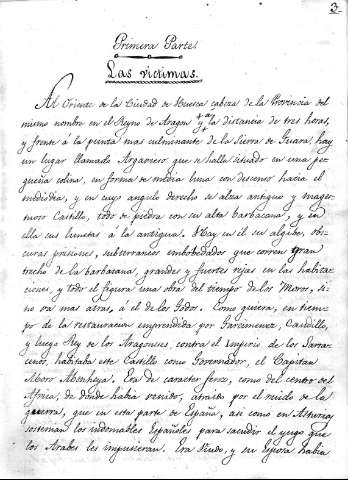 3.
Primera Parte.
Las victimas.
Al Oriente de la Ciudad de Huesca cabeza de la Provincia del
mismo nombre en el Reyno de Aragon y a la distancia de tres horas,
y frente á la punta mas culminante de la Sierra de Guara, hay
un lugar llamado Argavieso que se halla situado en una pe-
queña colina, en forma de media luna con descenso hacia el
mediodia, y en cuyo angulo derecho se alza antiguo y mages-
tuoso Castillo, todo de piedra con su alta barbacana, y en
ella sus lunetas á la antigua. Hay en él su algibe, obs-
curas prisiones, subterraneos embobedados que corren gran
trecho de la barbacana, grandes y fuertes rejas en las habita-
ciones, y todo él figura una obra del tiempo de los Moros, si
no va mas atras, á él de los Godos. Como quiera, en tiem-
po de la restauracion emprendida por Garcimenez, Caudillo,
y luego Rey de los Aragoneses, contra el Imperio de los Sarra-
cenos, habitaba este Castillo como Governador, el Capitan
Moro Abenheya. Era de caracter feroz, como del centro del
Africa, de donde habia venido, atraido por el ruido de la
guerra, que en esta parte de España, asi como en Asturias
sostenian los indomables Españoles para sacudir el yugo que
los Arabes les impusieran. Era Viudo, y su Esposa habia